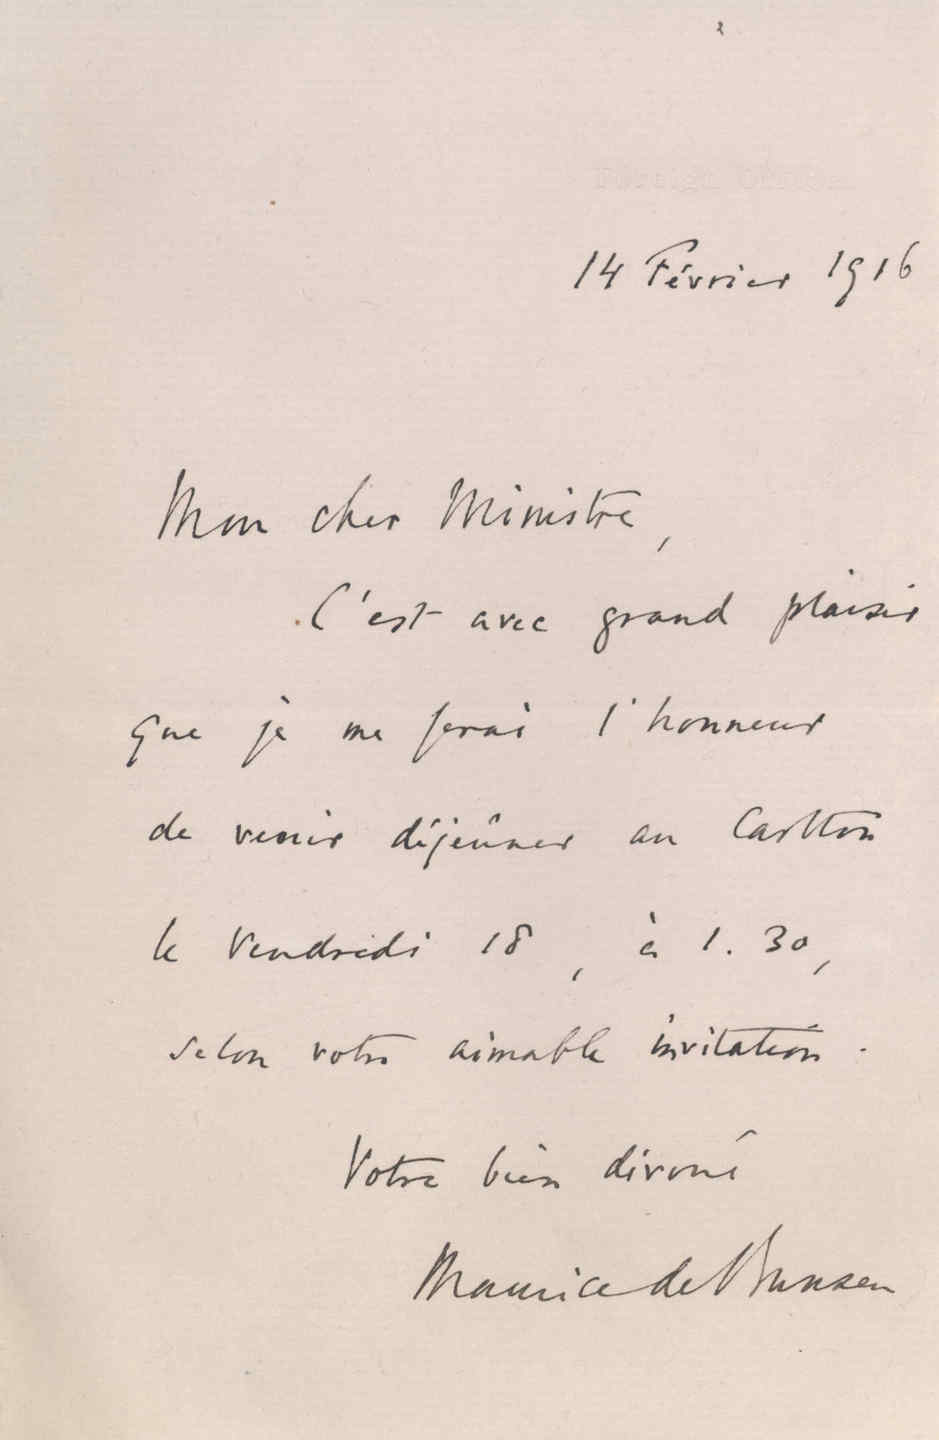 Foreign Office
14 Février 1916
Mon cher Ministre,
C'est avec grand plaisir
que je me ferai l'honneur
de venir déjeûner au Carlton
le Vendredi 18, à 1.30,
selon votre aimable invitation.
Votre bien dévoué
Maurice de Bunsen